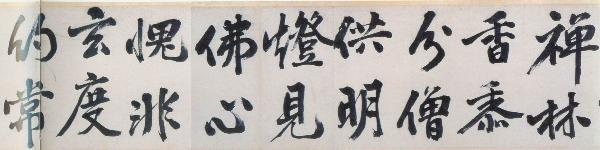 禪林
香黍
分僧
供明
燈見
佛心
愧非
玄度
的常